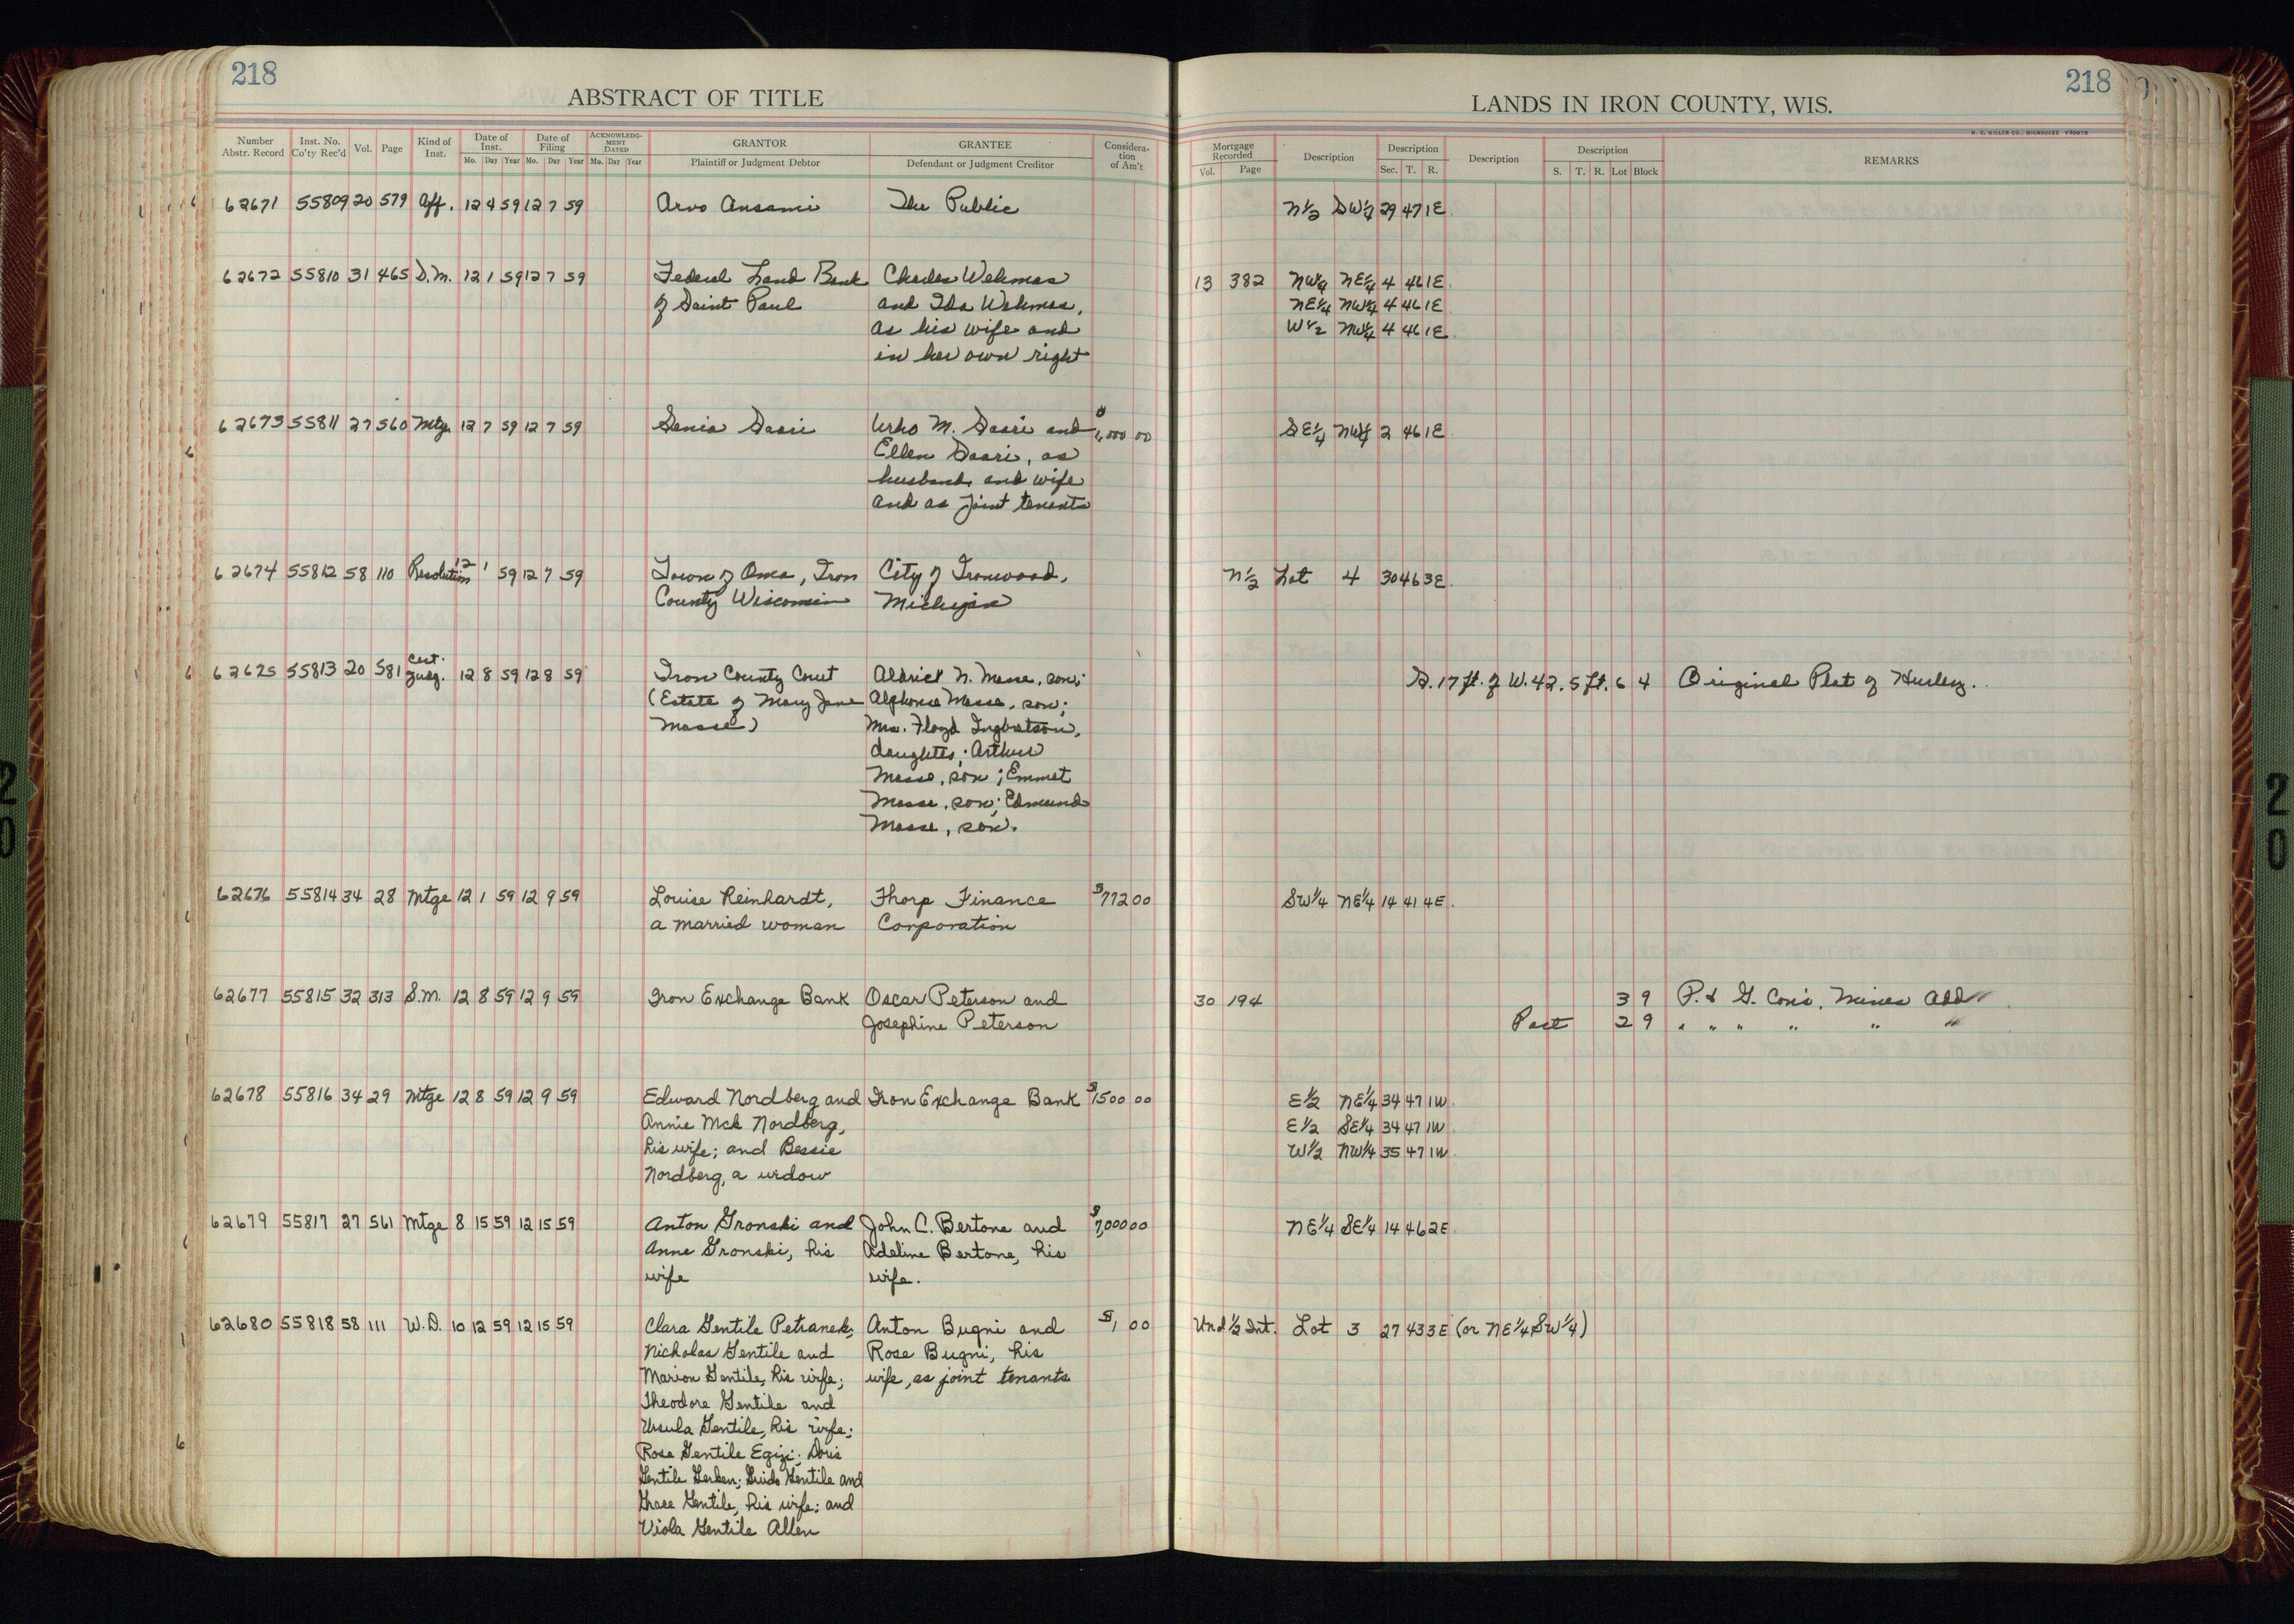 218
ABSTRACT OF TITLE
Number Abstr. Record Inst. No. Co'ty Rec'd Vol. Page Kind of Inst. Date of Inst. Date of Filing ACKNOWLEDG-MENT DATED GRANTOR GRANTEE Considera-tion of Am't
Mo. Day Year Mo. Day Year Mo. Day Year Plaintiff or Judgment Debtor Defendant or Judgment Creditor
62671 55809 20 579 Aff. 12 4 59 12 7 59 Arvo Ansami The Public
62672 55810 31 465 D.M. 12 1 59 12 7 59 Federal Land Bank Charles Wehmas
of Saint Paul and Ida Wehmas,
as his wife and
in her own right
62673 55811 27 560 Mtge 12 7 59 12 7 59 Senia Saari Urho M. Saari and $1,000 00
Ellen Saari, as
husband and wife
and as joint tenants
62674 55812 58 110 Resolution 12 1 59 12 7 59 Town of Oma, Iron City of Ironwood,
County Wisconsin Michigan
62675 55813 20 581 Cert. Judg. 12 8 59 12 8 59 Iron County Court Aldrich N. Masse, son;
(Estate of Mary Jane Alphonse Masse, son;
Masse) Mrs. Floyd Ingbretson,
daughter; Arthur
Masse, son; Emmet
Masse, son; Edmund
Masse, son.
62676 55814 34 28 Mtge 12 1 59 12 9 59 Louise Reinhardt, Thorp Finance $772 00
a married woman Corporation
62677 55815 32 313 S.M. 12 8 59 12 9 59 Iron Exchange Bank Oscar Peterson and
Josephine Peterson
62678 55816 34 29 Mtge 12 8 59 12 9 59 Edward Nordberg and Iron Exchange Bank $1500 00
Annie Mck Nordberg,
his wife; and Bessie
Nordberg, a widow
62679 55817 27 561 Mtge 8 15 59 12 15 59 Anton Gronski and John C. Bertone and $7,000 00
Anne Gronski, his Adeline Bertone, his
wife wife.
62680 55818 58 111 W.D. 10 12 59 12 15 59 Clara Gentile Petranek; Anton Bugni and $1, 00
Nicholas Gentile and Rose Bugni, his
Marion Gentile, his wife; wife, as joint tenants
Theodore Gentile and
Ursula Gentile, his wife;
Rose Gentile Egizi; Doris
Gentile Gerken; Guido Gentile and
Grace Gentile, his wife; and
Viola Gentile Allen
218
LANDS IN IRON COUNTY, WIS.
H. C. MILLER CO., MILWAUKEE
Mortgage Recorded Description Description Description Description REMARKS
Vol. Page Sec. T. R. S. T. R. Lot Block
N½ SW¼ 29 47 1E
13 382 NW¼ NE¼ 4 46 1E
NE¼ NW¼ 4 46 1E
W½ NW¼ 4 46 1E
SE¼ NW¼ 2 46 1E
N½ Lot 4 30 46 3E
S. 17 ft. of W. 42.5 ft. 6 4 Original Plat of Hurley.
SW¼ NE¼ 14 41 4E
30 194 3 9 P. & G. Con's. Mines Add
Part 2 9 " " " " " "
E½ NE¼ 34 47 1W
E½ SE¼ 34 47 1W
W½ NW¼ 35 47 1W
NE¼ SE¼ 14 46 2E
Und ½ Int. Lot 3 27 43 3E (or NE¼ SW¼)
2
0
2
0